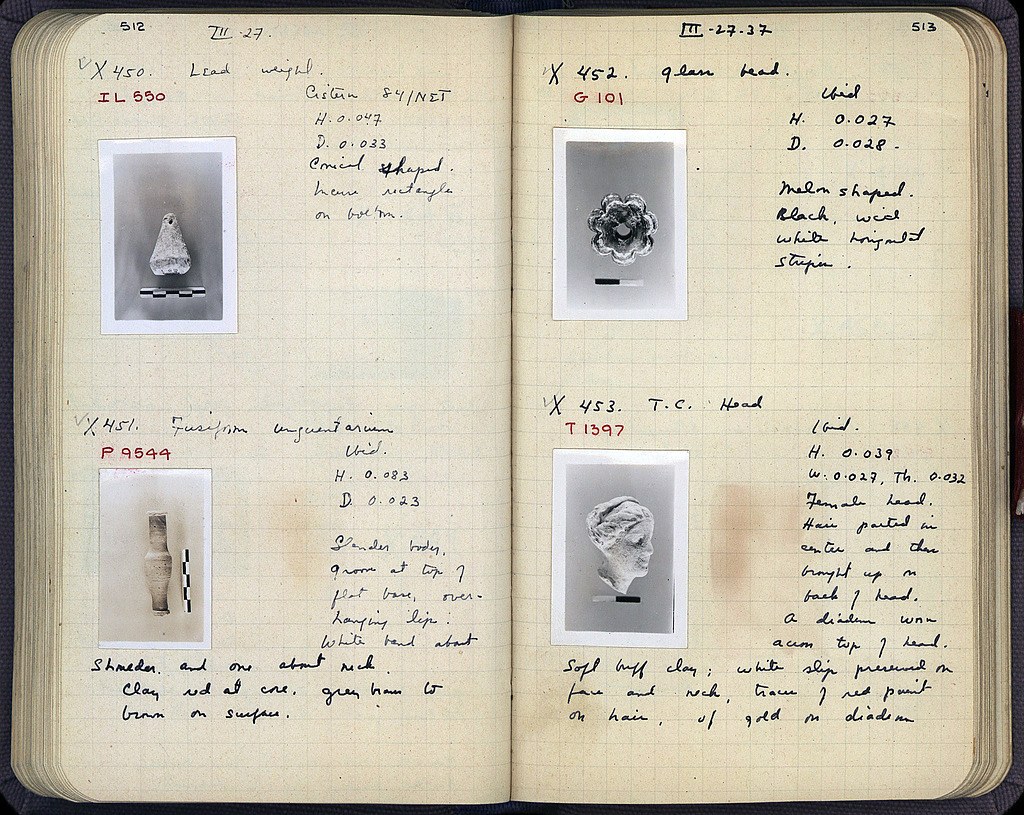 512
III-27.
X 450. Lead weight.
IL 550
Cistern 84/NET
H. 0.047
D. 0.033
Conical shaped.
Incuse rectangle
on bottom.
X 451. Fusiform unguentarium
P 9544
Ibid.
H. 0.083
D. 0.023
Slender body,
groove at top of
flat base, over-
hanging lip.
White band about
shoulder and one about neck.
Clay red at core, grey brown to
brown on surface.
III-27-37
513
X 452. Glass bead.
G 101
Ibid
H. 0.027
D. 0.028-
Melon shaped.
Black, with
white horizontal
stripes.
X 453. T.C. Head
T 1397
Ibid.
H. 0.039
W. 0.027, Th. 0.032
Female head.
Hair parted in
center and then
brought up on
back of head.
A diadem worn
across top of head.
Soft buff clay; white slip preserved on
face and neck, traces of red paint
on hair, of gold on diadem